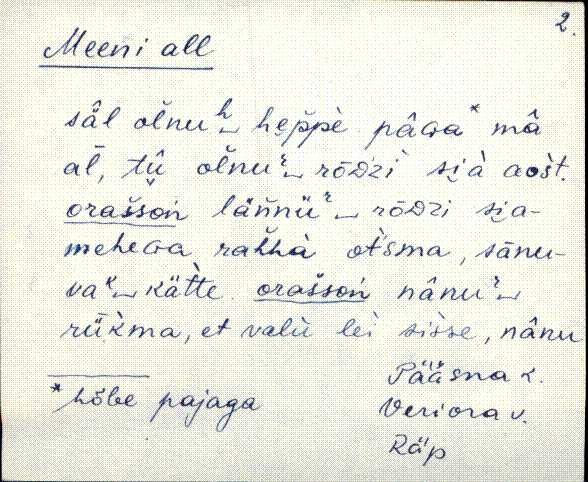 2.
Meeni all
säl oĺnuʰ‿ hep̆pè pâGa* mâ
āl, tû oĺnuʔ‿ rōDzì si̬à aòst.
oraššoń läńnüʔ‿ rōDzi si̬a-
meheGa rahhà ot̀sma, sānu-
vaʔ‿ kät̀te. oraššoń nânuʔ‿
rǖk̀ma, et valù lei sisse, nânu
* hõbe pajaga
Pääsna k.
Veriora v.
Räp